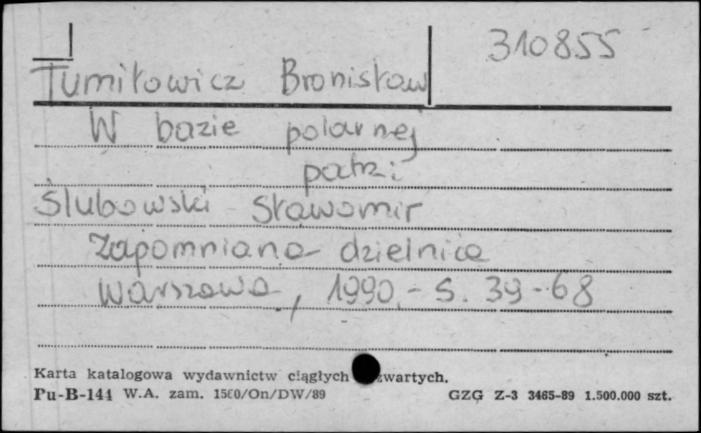 310855
Tumiłowicz Bronisław
W bazie polarnej
patrz:
Ślubowski Sławomir
Zapomniana dzielnica
Warszawa, 1990.- S. 39-68
Karta katalogowa wydawnictw ciągłych zwartych.
Pu-B-144 W.A. zam. 1500/On/DW/89 GZG Z-3 3465-89 1.500.000 szt.